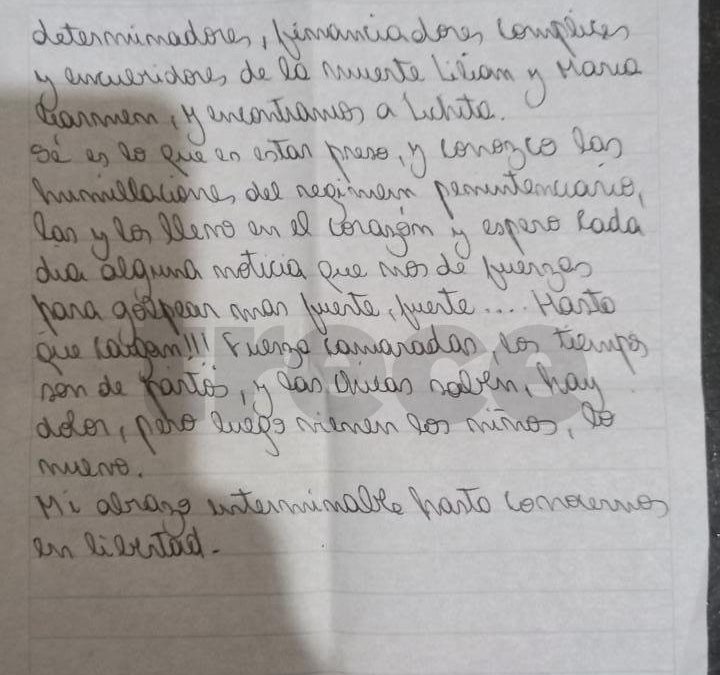 determinadores, financiadores complices
y encueridores de la muerte Lilian y Maria
Carmen, y encontramos a Lichita.
Sé es lo que es estar preso, y conozco las
humillaciones del regimen penintenciario,
las y los llevo en el corazón y espero cada
dia alguna noticia que nos de fuerzas
para golpear mas fuerte, fuerte.... Hasta
que caigan!!! Fuerza camaradas, los tiempos
son de partos, y las chicas saben, hay
dolor, pero luego vienen los niños, lo
nuevo.
Mi abrazo interminable hasta conocernos
en libertad.-
trece